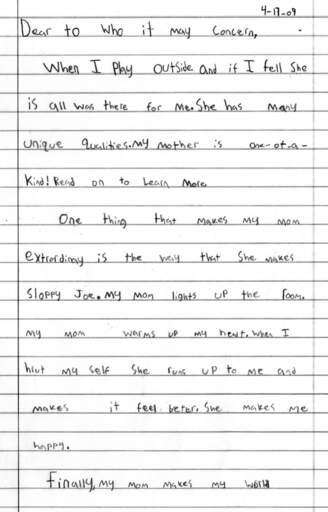 4-17-09
Dear to who it may concern,
When I play outside and if I fell she
is all was there for me. She has many
unique qualities. my mother is one-of-a-
kind! Read on to learn more
One thing that makes my mom
extrordinay is the way that she makes
Sloppy Joe. my mom lights up the room.
my mom warms up my heart. when I
hurt my self she runs up to me and
makes it feel beter. She makes me
happy.
Finally, my mom makes my world